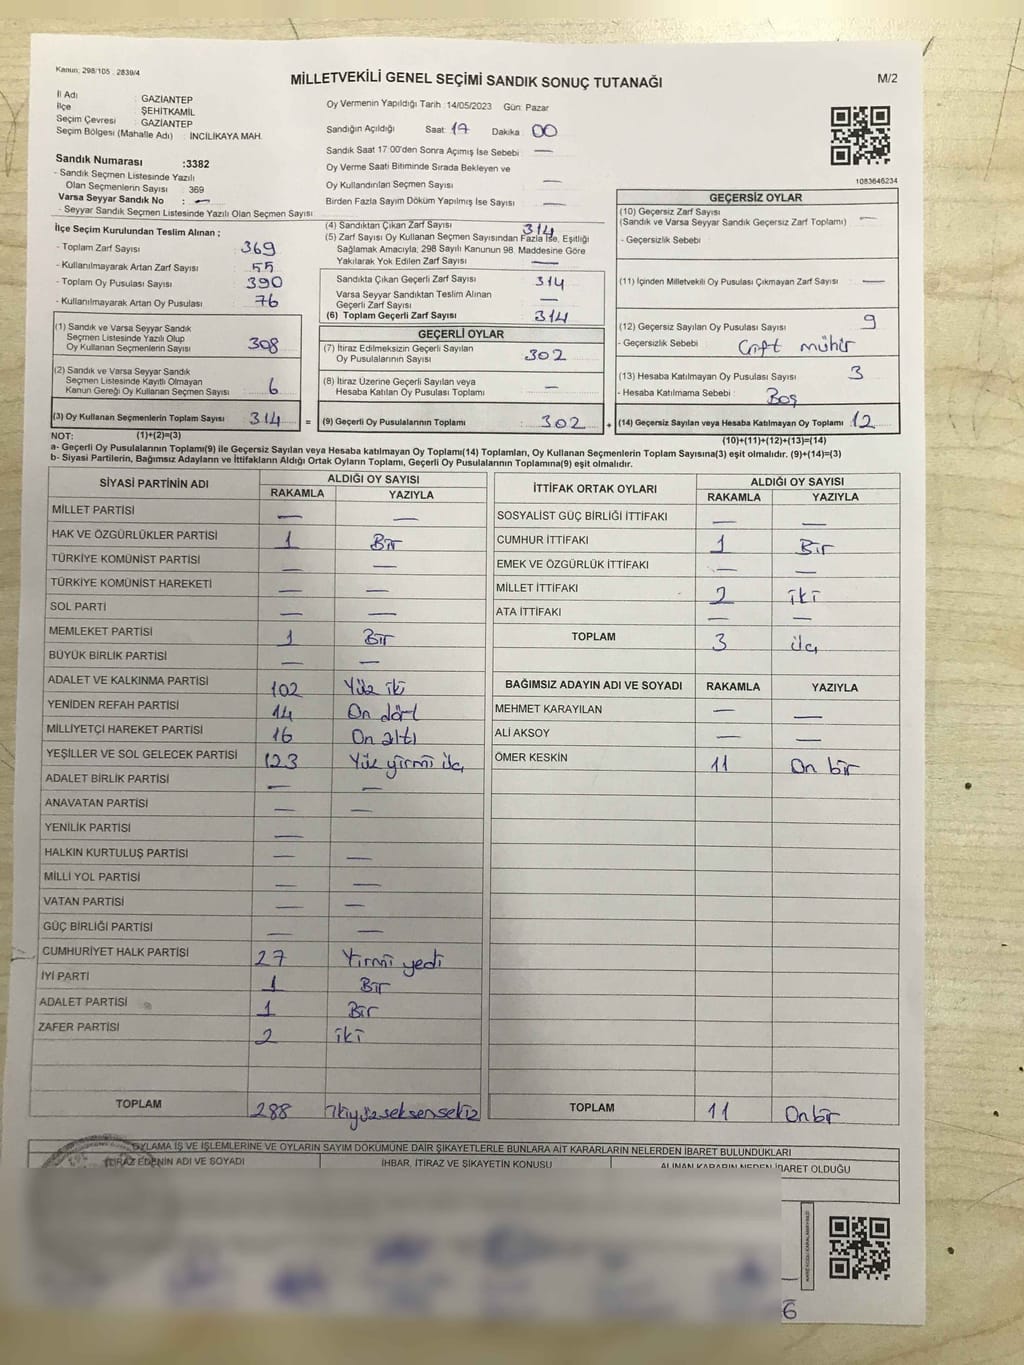 Kanun: 298/105 2839/4
MİLLETVEKİLİ GENEL SEÇİMİ SANDIK SONUÇ TUTANAĞI
M/2
İl Adı : GAZİANTEP
İlçe : ŞEHİTKAMİL
Seçim Çevresi : GAZİANTEP
Seçim Bölgesi (Mahalle Adı) : İNCİLİKAYA MAH.
Sandık Numarası :3382
- Sandık Seçmen Listesinde Yazılı
Olan Seçmenlerin Sayısı : 369
Varsa Seyyar Sandık No : —
- Seyyar Sandık Seçmen Listesinde Yazılı Olan Seçmen Sayısı :
Oy Vermenin Yapıldığı Tarih : 14/05/2023 Gün: Pazar
Sandığın Açıldığı Saat: 17 Dakika : 00
Sandık Saat 17:00'den Sonra Açımış İse Sebebi : —
Oy Verme Saati Bitiminde Sırada Bekleyen ve
Oy Kullandırılan Seçmen Sayısı : —
Birden Fazla Sayım Döküm Yapılmış İse Sayısı : —
1083646234
İlçe Seçim Kurulundan Teslim Alınan ;
- Toplam Zarf Sayısı : 369
- Kullanılmayarak Artan Zarf Sayısı : 55
- Toplam Oy Pusulası Sayısı : 390
- Kullanılmayarak Artan Oy Pusulası : 76
(1) Sandık ve Varsa Seyyar Sandık
Seçmen Listesinde Yazılı Olup
Oy Kullanan Seçmenlerin Sayısı : 308
(2) Sandık ve Varsa Seyyar Sandık
Seçmen Listesinde Kayıtlı Olmayan
Kanun Gereği Oy Kullanan Seçmen Sayısı : 6
(3) Oy Kullanan Seçmenlerin Toplam Sayısı : 314 =
(4) Sandıktan Çıkan Zarf Sayısı : 314
(5) Zarf Sayısı Oy Kullanan Seçmen Sayısından Fazla İse, Eşitliği
Sağlamak Amacıyla; 298 Sayılı Kanunun 98. Maddesine Göre
Yakılarak Yok Edilen Zarf Sayısı : —
Sandıkta Çıkan Geçerli Zarf Sayısı : 314
Varsa Seyyar Sandıktan Teslim Alınan
Geçerli Zarf Sayısı : —
(6) Toplam Geçerli Zarf Sayısı : 314
GEÇERLİ OYLAR
(7) İtiraz Edilmeksizin Geçerli Sayılan
Oy Pusulalarının Sayısı : 302
(8) İtiraz Üzerine Geçerli Sayılan veya
Hesaba Katılan Oy Pusulası Toplamı : —
(9) Geçerli Oy Pusulalarının Toplamı : 302 +
GEÇERSİZ OYLAR
(10) Geçersiz Zarf Sayısı
(Sandık ve Varsa Seyyar Sandık Geçersiz Zarf Toplamı) : —
- Geçersizlik Sebebi :
(11) İçinden Milletvekili Oy Pusulası Çıkmayan Zarf Sayısı : —
(12) Geçersiz Sayılan Oy Pusulası Sayısı : 9
- Geçersizlik Sebebi : Çift mühür
(13) Hesaba Katılmayan Oy Pusulası Sayısı : 3
- Hesaba Katılmama Sebebi : Boş
(14) Geçersiz Sayılan veya Hesaba Katılmayan Oy Toplamı : 12
NOT: (1)+(2)=(3)
(10)+(11)+(12)+(13)=(14)
a- Geçerli Oy Pusulalarının Toplamı(9) ile Geçersiz Sayılan veya Hesaba katılmayan Oy Toplamı(14) Toplamları, Oy Kullanan Seçmenlerin Toplam Sayısına(3) eşit olmalıdır. (9)+(14)=(3)
b- Siyasi Partilerin, Bağımsız Adayların ve İttifakların Aldığı Ortak Oyların Toplamı, Geçerli Oy Pusulalarının Toplamına(9) eşit olmalıdır.
SİYASİ PARTİNİN ADI ALDIĞI OY SAYISI
RAKAMLA YAZIYLA
MİLLET PARTİSİ — —
HAK VE ÖZGÜRLÜKLER PARTİSİ 1 Bir
TÜRKİYE KOMÜNİST PARTİSİ — —
TÜRKİYE KOMÜNİST HAREKETİ — —
SOL PARTİ — —
MEMLEKET PARTİSİ 1 Bir
BÜYÜK BİRLİK PARTİSİ — —
ADALET VE KALKINMA PARTİSİ 102 Yüz iki
YENİDEN REFAH PARTİSİ 14 On dört
MİLLİYETÇİ HAREKET PARTİSİ 16 On altı
YEŞİLLER VE SOL GELECEK PARTİSİ 123 Yüz yirmi üç
ADALET BİRLİK PARTİSİ — —
ANAVATAN PARTİSİ — —
YENİLİK PARTİSİ —
HALKIN KURTULUŞ PARTİSİ — —
MİLLİ YOL PARTİSİ — —
VATAN PARTİSİ — —
GÜÇ BİRLİĞİ PARTİSİ — —
CUMHURİYET HALK PARTİSİ 27 Yirmi yedi
İYİ PARTİ 1 Bir
ADALET PARTİSİ 1 Bir
ZAFER PARTİSİ 2 iki
TOPLAM 288 ikiyüzseksensekiz
İTTİFAK ORTAK OYLARI ALDIĞI OY SAYISI
RAKAMLA YAZIYLA
SOSYALİST GÜÇ BİRLİĞİ İTTİFAKI — —
CUMHUR İTTİFAKI 1 Bir
EMEK VE ÖZGÜRLÜK İTTİFAKI — —
MİLLET İTTİFAKI 2 iki
ATA İTTİFAKI — —
TOPLAM 3 üç
BAĞIMSIZ ADAYIN ADI VE SOYADI RAKAMLA YAZIYLA
MEHMET KARAYILAN — —
ALİ AKSOY — —
ÖMER KESKİN 11 On bir
TOPLAM 11 Onbir
OYLAMA İŞ VE İŞLEMLERİNE VE OYLARIN SAYIM DÖKÜMÜNE DAİR ŞİKAYETLERLE BUNLARA AİT KARARLARIN NELERDEN İBARET BULUNDUKLARI
İTİRAZ EDENİN ADI VE SOYADI İHBAR, İTİRAZ VE ŞİKAYETİN KONUSU ALINAN KARARIN NEDEN İBARET OLDUĞU
6